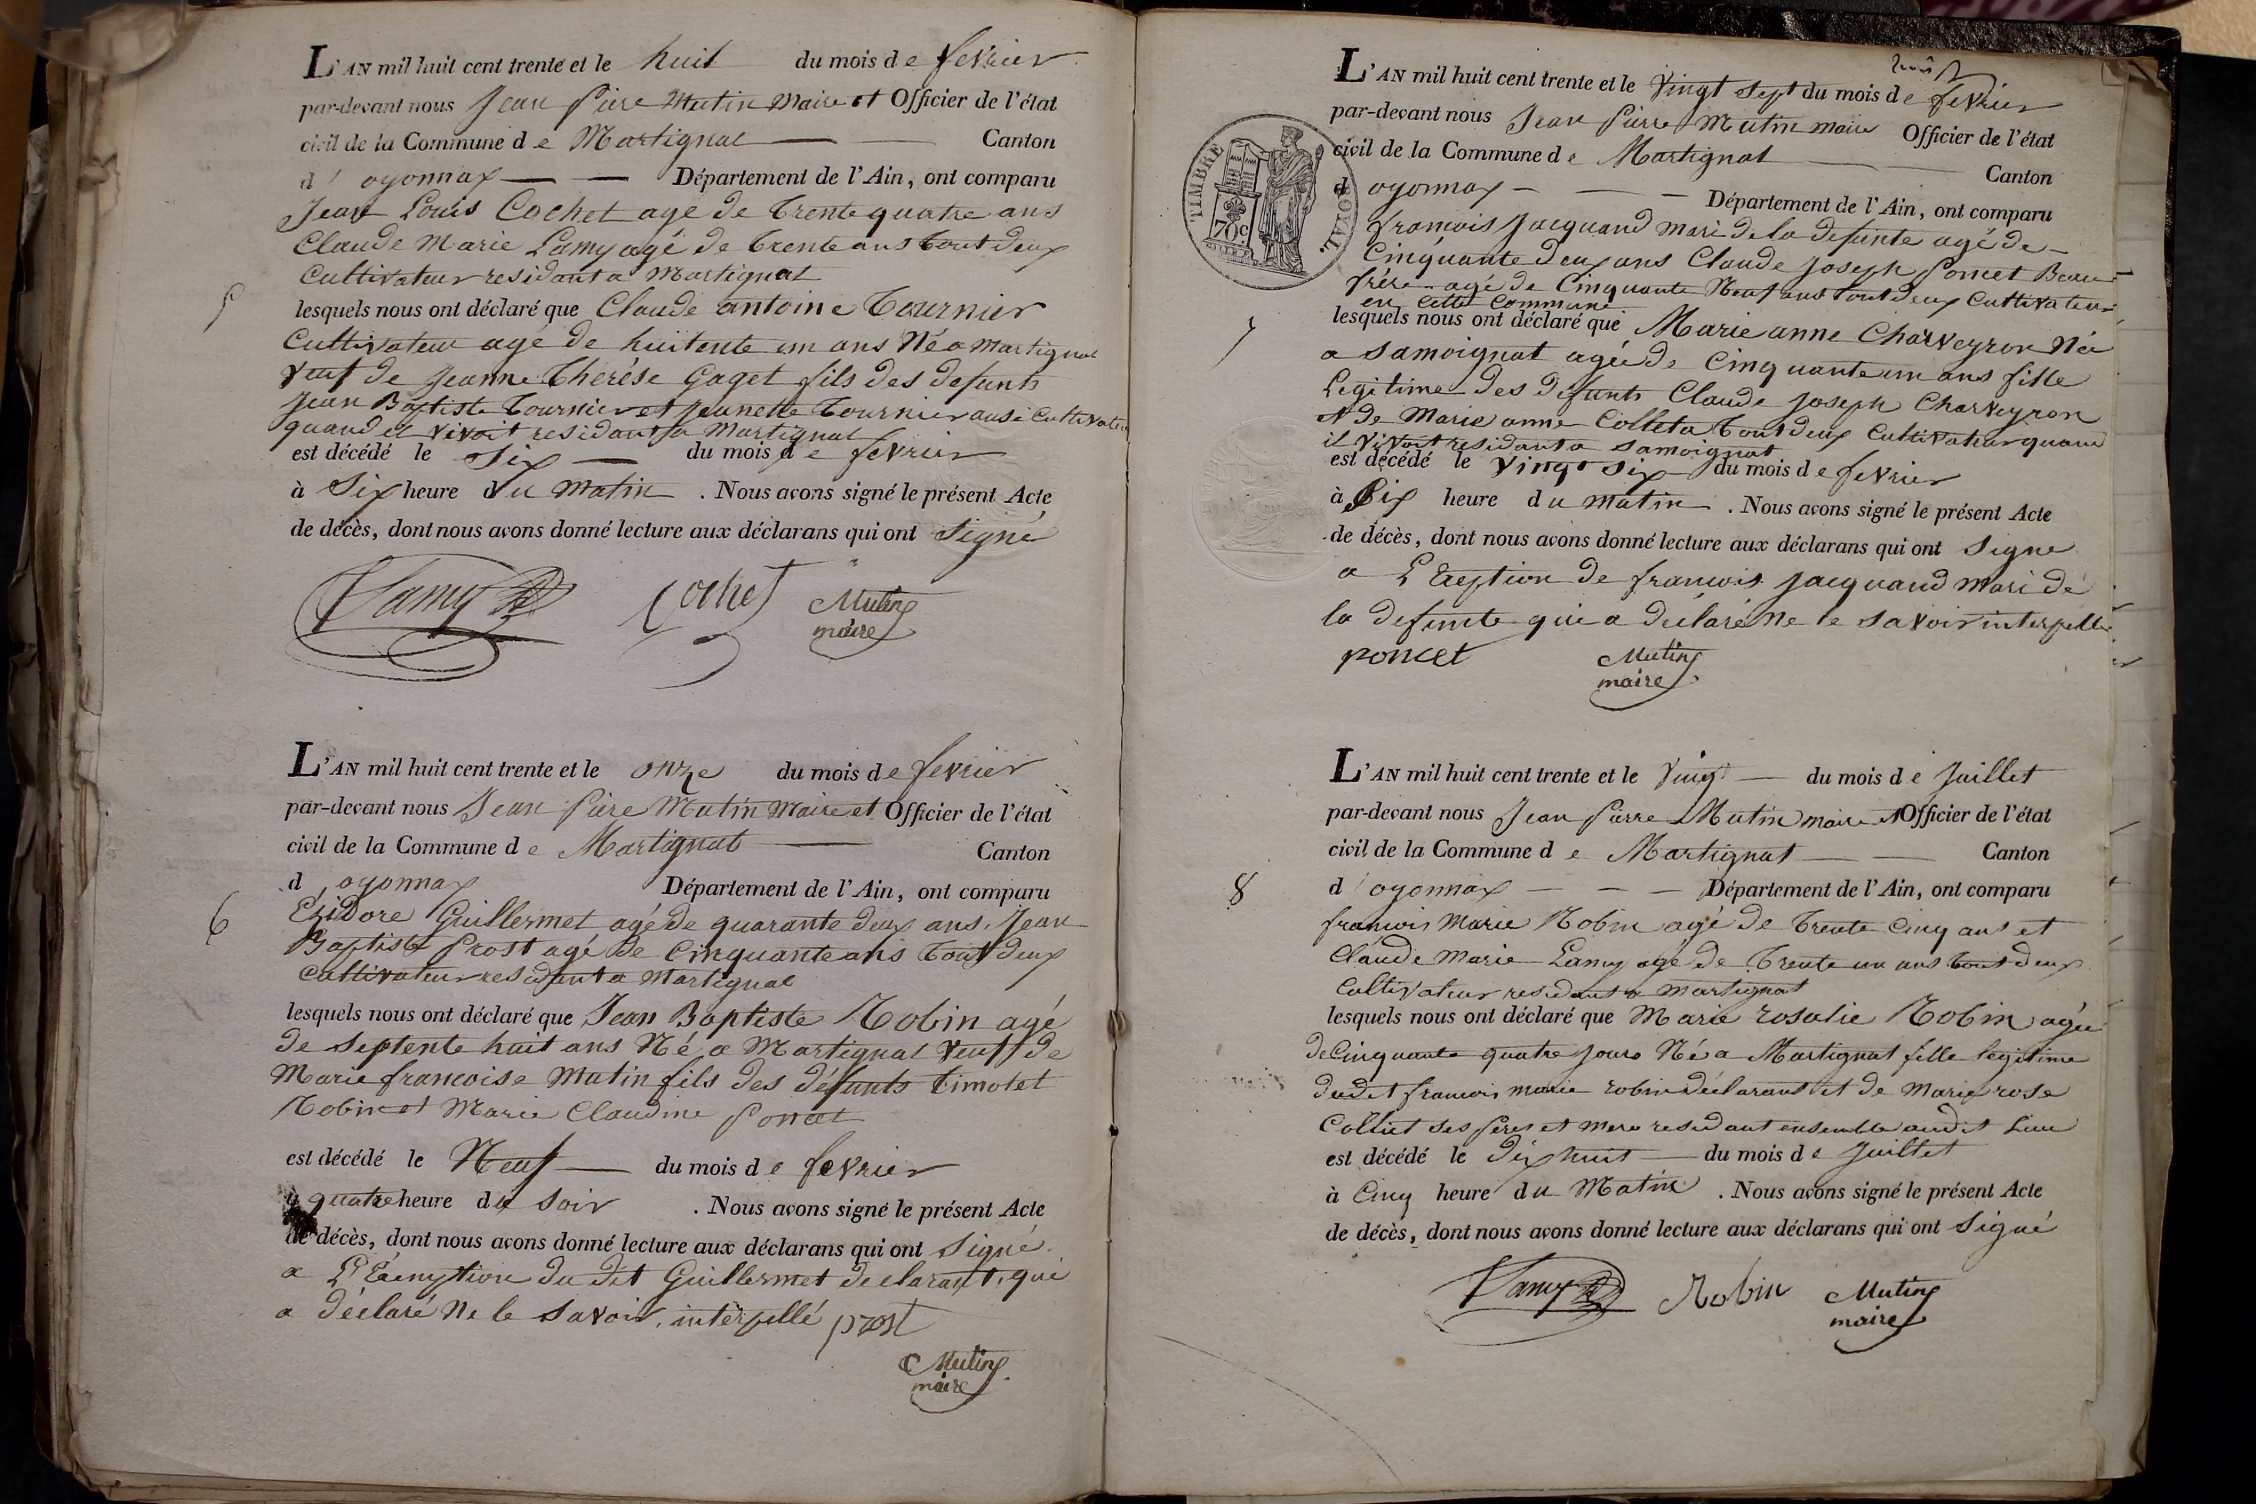 L'AN mil huit cent trente et le huit du mois de fevrier
par-devant nous Jean Piere Mutin Maire et Officier de l'état
civil de la Commune de Martignat Canton
d' oyonnax Département de l'Ain, ont comparu
Jean Louis Cochet age de trente quatre ans
Claude Marie Lamy agé de trente ans tout deux
Cultivateur residant a Martignat
5
lesquels nous ont déclaré que Claude antoine Tournier
Cultivateur agé de huitente un ans Né a Martignat
veuf de Jeanne Therése Gaget fils des defunts
Jean Baptiste Tournier et Jeanette Tournier ausi Cultivateur
quand il vivoit residant a Martignat
est décédé le Six du mois de fevrier
à Six heure du Matin . Nous avons signé le présent Acte
de décès, dont nous avons donné lecture aux déclarans qui ont Signé
Lamy Cochet Mutin
maire
L'AN mil huit cent trente et le onze du mois de fevrier
par-devant nous Jean Piere Mutin Maire et Officier de l'état
civil de la Commune de Martignat Canton
d' oyonnax Département de l'Ain, ont comparu
6
Ezidore Guillermet agé de quarante deux ans, Jean
Baptiste Prost agé de Cinquante ans tout deux
Cultivateur residant a Martignat
lesquels nous ont déclaré que Jean Baptiste Robin agé
de septente huit ans Né a Martignat veuf de
Marie francoise Mutin fils des défunts timotet
Robin et Marie Claudine Poncet
est décédé le Neuf du mois de fevrier
à quatre heure du soir . Nous avons signé le présent Acte
de décès, dont nous avons donné lecture aux déclarans qui ont Signé
a L'Exemption du dit Guillermet declarant, qui
a déclaré Ne le savoir, intérpellé prost
Mutin
maire
L'AN mil huit cent trente et le vingt sept du mois de fevrier
par-devant nous Jean Pierre Mutin maire Officier de l'état
TIMBRE ROYAL
70c
civil de la Commune de Martignat Canton
d oyonnax Département de l'Ain, ont comparu
francois Jacquand mari de la defunte agé de
Cinquante deux ans Claude Joseph Poncet Beau
frére agé de Cinquante Neuf ans tout deux Cultivateur
en cette Commune
7
lesquels nous ont déclaré que Marie anne Charveyron Née
a samoignat agée de Cinquante un ans fille
Legitime des defunts Claude Joseph Charveyron
et de Marie anne Colleta tout deux Cultivateur quand
il vivoit residant a samoignat
est décédé le vingt six du mois de fevrier
à Six heure du matin . Nous avons signé le présent Acte
de décès, dont nous avons donné lecture aux déclarans qui ont signe
a L'Exeption de francois Jacquand Mari de
la defunte qui a déclaré Ne le savoir interpellé
poncet Mutin
maire
L'AN mil huit cent trente et le vingt du mois de Juillet
par-devant nous Jean Pierre Mutin maire et Officier de l'état
civil de la Commune de Martignat Canton
8
d' oyonnax Département de l'Ain, ont comparu
francois Marie Robin agé de trente Cinq ans et
Claude Marie Lamy agé de trente un ans tout deux
Cultivateur residant a Martignat
lesquels nous ont déclaré que Marie rosalie Robin agée
de Cinquante quatre jours Né a Martignat fille legitime
dudit francois marie robin déclarant et de Marie rose
Colliet ses pere et mere residant ensemble audit Lieu
est décédé le dix huit du mois de Juillet
à Cinq heure du Matin . Nous avons signé le présent Acte
de décès, dont nous avons donné lecture aux déclarans qui ont Signé
Lamy Robin Mutin
maire